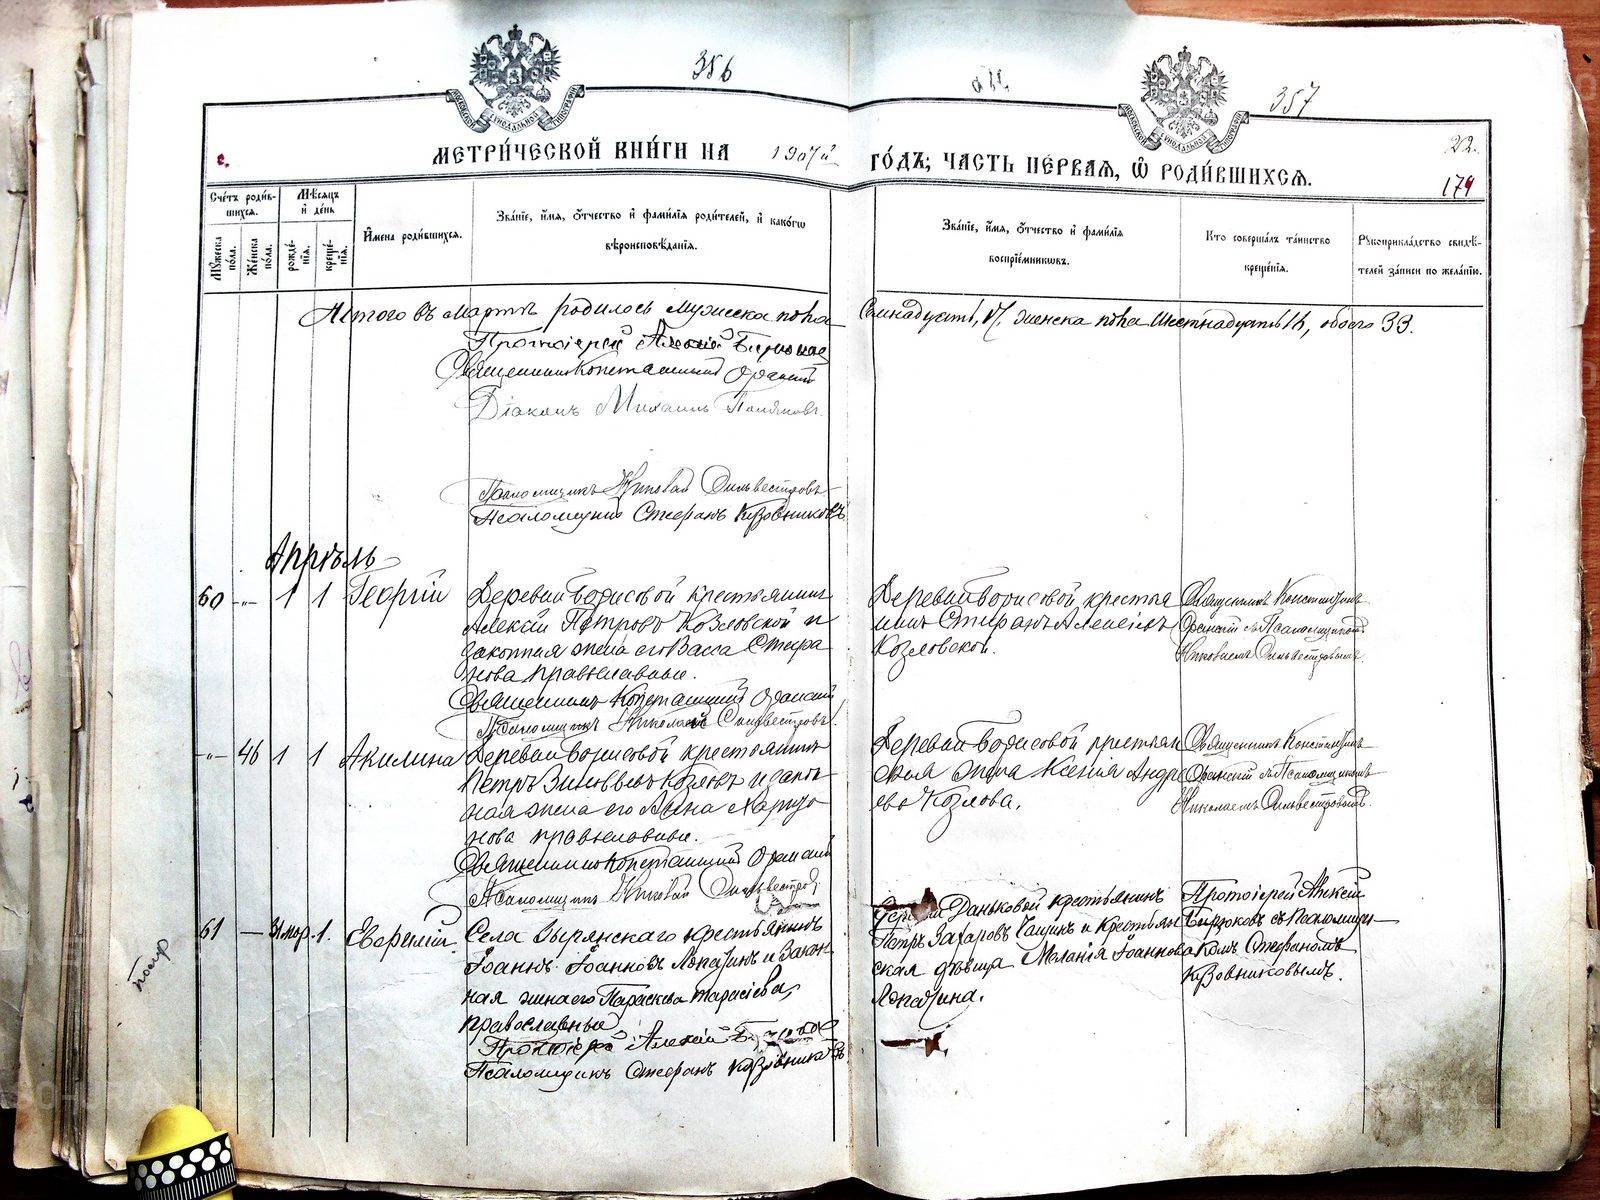 356
357
МЕТРИ́ЧЕСКОЙ КНИ́ГИ НА 1907й
ГО́ДЪ; ЧАСТЬ ПЕ́РВАЯ, Ѿ РОДИ́ВШИХСЯ.
22.
179
Сче́тъ роди́в-
шихся.
Мѣсяцъ
и де́нь
Мꙋжеска по́ла.
Же́нска по́ла.
рожде́-
нїя.
креще́-
нїя.
Имена роди́вшихся.
Зва́нїе, и́мя, о́тчество и фами́лїя роди́телей, и како́гѡ
вѣроисповѣ́данїя.
Зва́нїе, и́мя, о́тчество и фами́лїя
воспрїе́мникѡвъ.
Кто соверша́лъ та́инство
креще́нїя.
Рꙋкоприкла́дство свидѣ́-
телей за́писи по жела́нїю.
Итого въ Мартѣ родилось Мужеска пола
Семнадцать, 17, женска пола Шестнадцать 16, обоего 33.
Протоіерей Алексій Бирюков
Священникъ Константинъ
Діаконъ Михаилъ Поляковъ.
Псаломщикъ Николай Сильвестровъ
Псаломщикъ Стефанъ Кузовниковъ
Апрѣль
60 -"- 1 1 Георгій
Деревни Борисовой крестьянинъ
Алексій Петровъ Козловской и
законная жена его Васса Стефа
нова православные.
Священникъ Константинъ
Псаломщикъ Николай Сильвестровъ
Деревни Борисовой крестья
нинъ Стефанъ Алексѣевъ
Козловской.
Священникъ Константинъ
съ Псаломщикомъ
Николаемъ Сильвестровымъ.
-"- 46 1 1 Акилина
Деревни Борисовой крестьянинъ
Петръ Зиновьевъ Козловъ и закон
ная жена его Анна Харито
нова православные.
Священникъ Константинъ
Псаломщикъ Николай Сильвестровъ
Деревни Борисовой крестьян
ская жена Ксенія Андре
ева Козлова.
Священникъ Константинъ
съ Псаломщикомъ
Николаемъ Сильвестровымъ.
61 — 31 мар. 1. Евфимій
Села Вырянскаго крестьянинъ
Іоаннъ Іоанновъ Лопатинъ и закон
ная жена его Параскева Тарасіева,
православные
Протоіерей Алексій
Псаломщикъ Стефанъ Кузовниковъ
Деревни Даньковой крестьянинъ
Петръ Захаровъ и Крестьян
ская дѣвица Меланія Іоаннова
Лопатина.
Протоіерей Алексій
Бирюковъ съ Псаломщи
комъ Стефаномъ
Кузовниковымъ.